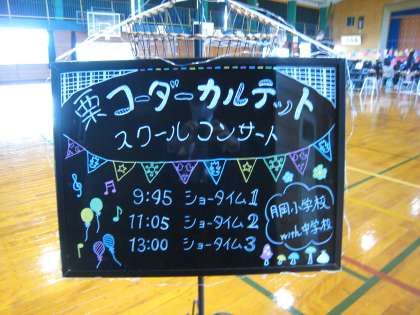 栗コーダーカルテット
スクールコンサート
9:45 ショータイム1
11:05 ショータイム2
13:00 ショータイム3
月岡小学校
with中学校